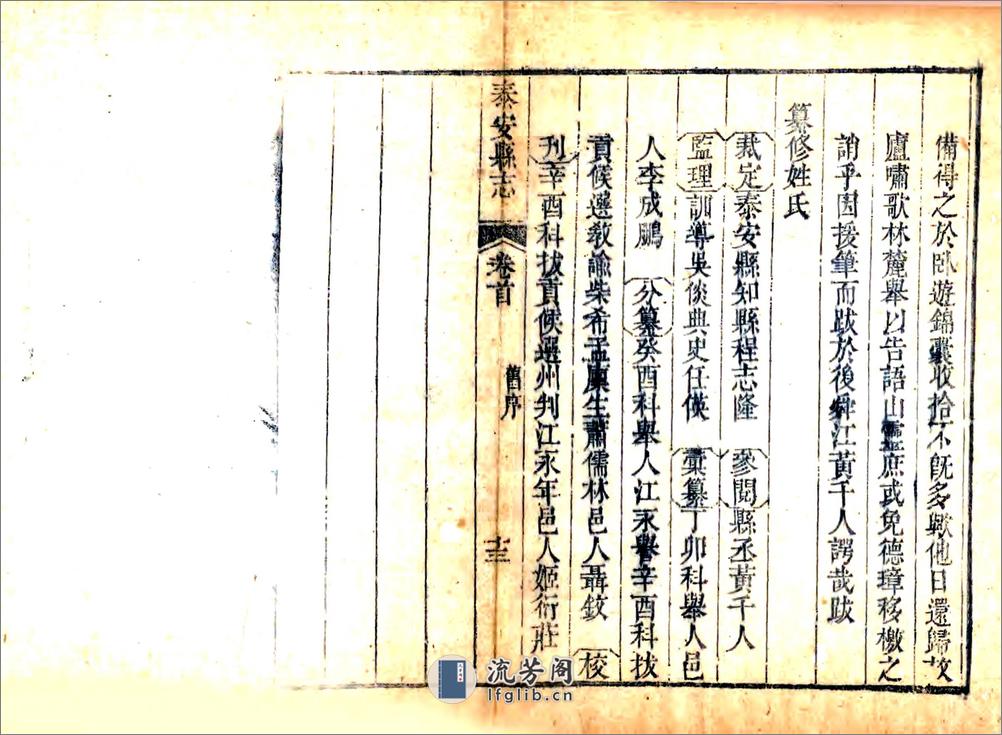 備得之於臥遊錦囊收拾不旣多歟他日還歸故
廬嘯歌林麓舉以告語山靈庶或免德璋移檄之
誚乎因援筆而跋於後舜江黃千人諤哉跋
纂修姓氏
裁定泰安縣知縣程志隆　參閱縣丞黃千人
監理訓導吳倓典史任僙　彙纂丁卯科舉人邑
人李成鵬　分纂癸酉科舉人江永譽辛酉科拔
貢候選敎諭柴希孟廩生蕭儒林邑人聶鈙　校
刋辛酉科拔貢候選州判江永年邑人姬衍莊
泰安縣志
卷首
舊序
十三
流芳阁
lfglib.cn